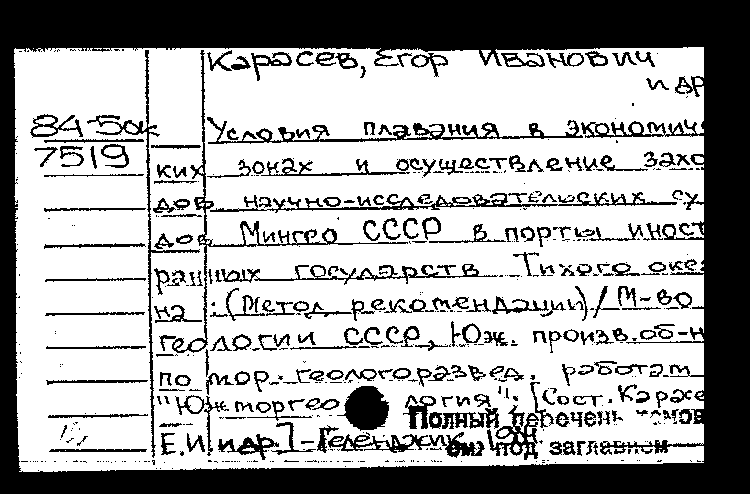 Карасев, Егор Иванович
и др
84-5ок
7519
Условия плавания в экономичес
ких зонах и осуществление захо
дов научно-исследовательских су
дов Мингео СССР в порты иност
ранных государств Тихого океа
на : (Метод. рекомендации) / М-во
геологии СССР, Юж. произв. об-н
по мор. геологоразвед. работам
"Южморгео логия"; [Сост. Карасе
Полный перечень томов
Е.И. и др.] - Геленджик, 1984
см. под заглавием